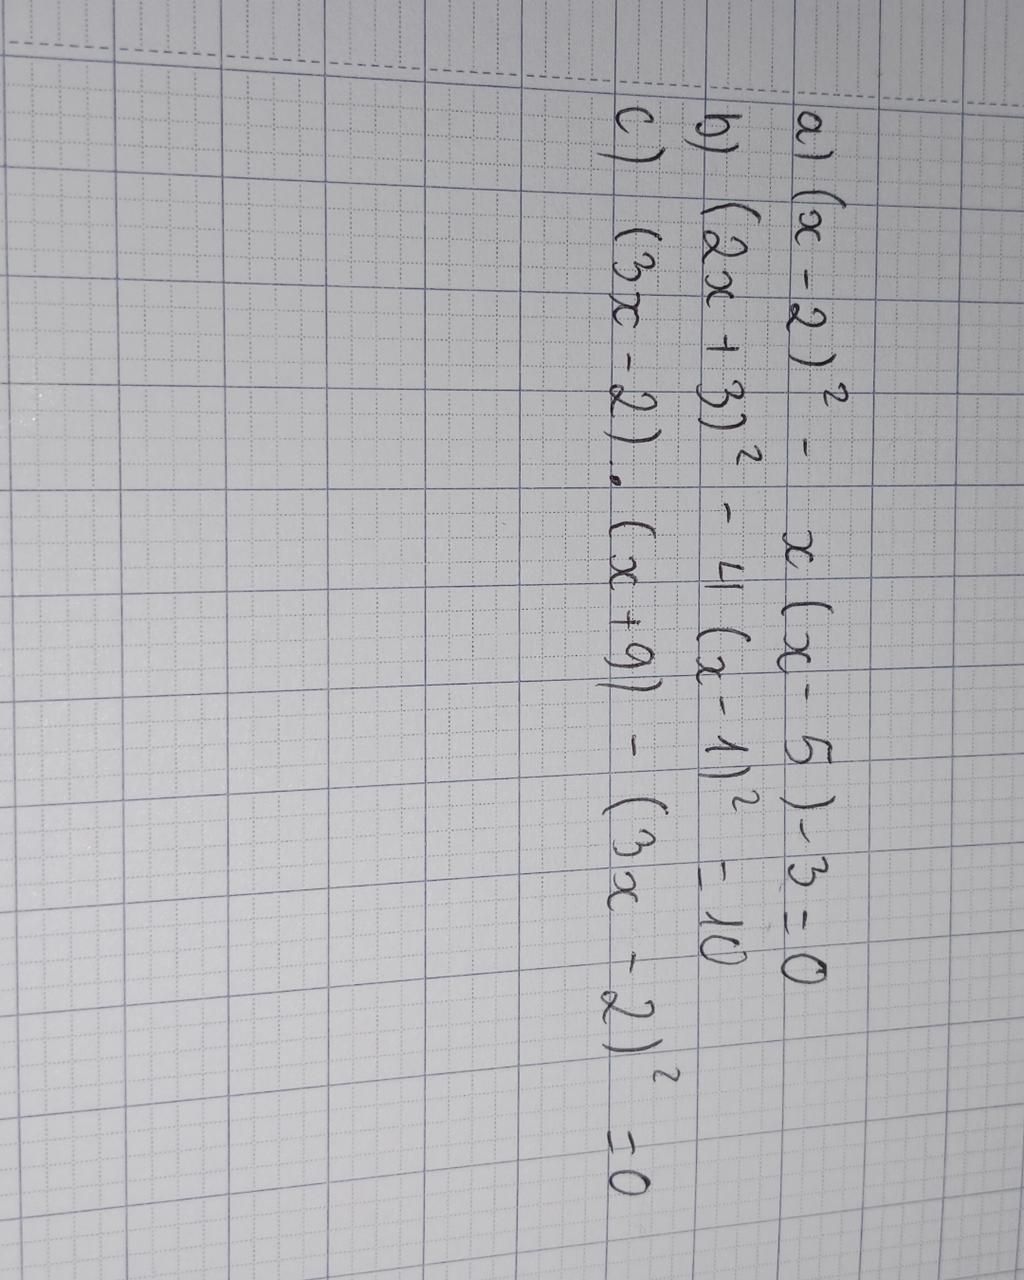 a) (x - 2)² - x (x - 5) - 3 = 0
b) (2x + 3)² - 4 (x - 1)² = 10
c) (3x - 2) . (x + 9) - (3x - 2)² = 0